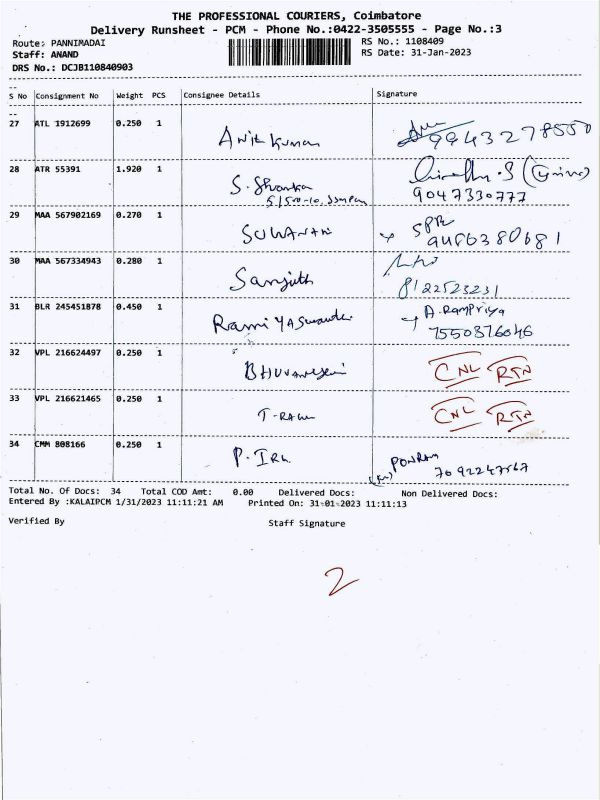 THE PROFESSIONAL COURIERS, Coimbatore
Delivery Runsheet - PCM - Phone No.:0422-3505555 - Page No.:3
Route: PANNIMADAI
RS No.: 1108409
Staff: ANAND
RS Date: 31-Jan-2023
DRS No.: DCJB110840903
S No Consignment No Weight PCS Consignee Details Signature
27 ATL 1912699 0.250 1 Anil Kumar 9943278550
28 ATR 55391 1.920 1 S. Sharika
9047330777
29 MAA 567902169 0.270 1 SUHANTH SPR
9486380681
30 MAA 567334943 0.280 1 Sanjith
8122523231
31 BLR 245451878 0.450 1 Rami A. Rampriya
7550376046
32 VPL 216624497 0.250 1 CNL RTN
33 VPL 216621465 0.250 1 CNL RTN
34 CMM 808166 0.250 1 PONRAM
7092247567
Total No. Of Docs: 34 Total COD Amt: 0.00 Delivered Docs: Non Delivered Docs:
Entered By :KALAIPCM 1/31/2023 11:11:21 AM Printed On: 31-01-2023 11:11:13
Verified By Staff Signature
2